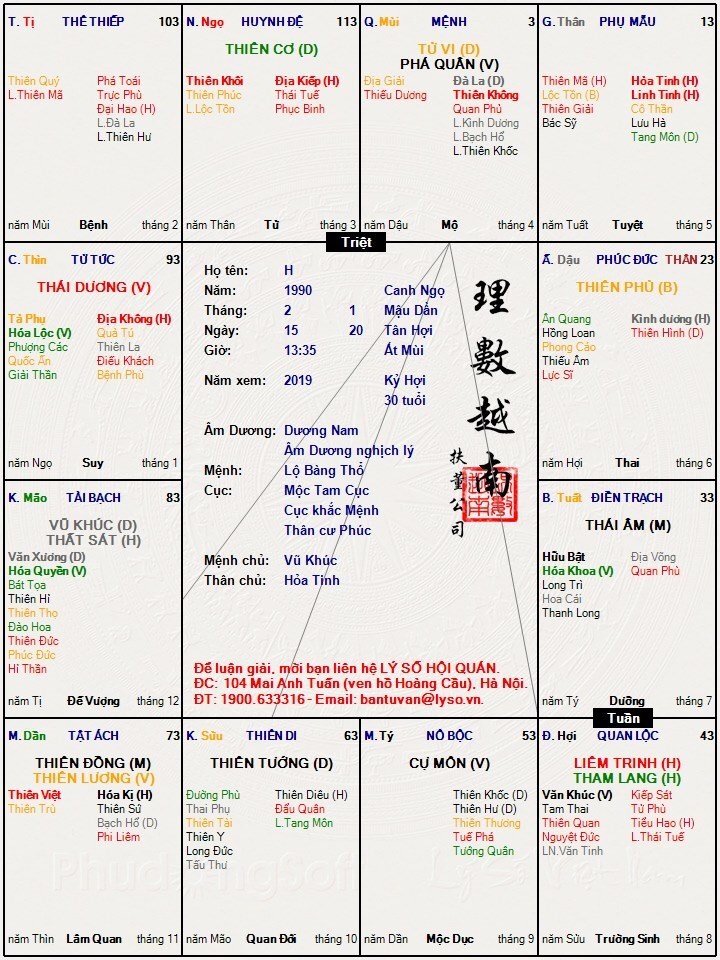 T. Tị THÊ THIẾP 103
Thiên Quý
L.Thiên Mã
Phá Toái
Trực Phù
Đại Hao (H)
L.Đà La
L.Thiên Hư
năm Mùi Bệnh tháng 2
N. Ngọ HUYNH ĐỆ 113
THIÊN CƠ (D)
Thiên Khôi
Thiên Phúc
L.Lộc Tồn
Địa Kiếp (H)
Thái Tuế
Phục Binh
năm Thân Tử tháng 3
Q. Mùi MỆNH 3
TỬ VI (D)
PHÁ QUÂN (V)
Địa Giải
Thiếu Dương
Đà La (D)
Thiên Không
Quan Phủ
L.Kình Dương
L.Bạch Hổ
L.Thiên Khốc
năm Dậu Mộ tháng 4
G. Thân PHỤ MẪU 13
Thiên Mã (H)
Lộc Tồn (B)
Thiên Giải
Bác Sỹ
Hỏa Tinh (H)
Linh Tinh (H)
Cô Thần
Lưu Hà
Tang Môn (D)
năm Tuất Tuyệt tháng 5
Triệt
C. Thìn TỬ TỨC 93
THÁI DƯƠNG (V)
Tả Phụ
Hóa Lộc (V)
Phượng Các
Quốc Ấn
Giải Thần
Địa Không (H)
Quả Tú
Thiên La
Điếu Khách
Bệnh Phù
năm Ngọ Suy tháng 1
Họ tên: H
Năm: 1990 Canh Ngọ
Tháng: 2 1 Mậu Dần
Ngày: 15 20 Tân Hợi
Giờ: 13:35 Ất Mùi
Năm xem: 2019 Kỷ Hợi
30 tuổi
Âm Dương: Dương Nam
Âm Dương nghịch lý
Mệnh: Lộ Bàng Thổ
Cục: Mộc Tam Cục
Cục khắc Mệnh
Thân cư Phúc
Mệnh chủ: Vũ Khúc
Thân chủ: Hỏa Tinh
理數越南
扶董公司
Để luận giải, mời bạn liên hệ LÝ SỐ HỘI QUÁN.
ĐC: 104 Mai Anh Tuấn (ven hồ Hoàng Cầu), Hà Nội.
ĐT: 1900.633316 - Email: bantuvan@lyso.vn.
Ấ. Dậu PHÚC ĐỨC THÂN 23
THIÊN PHỦ (B)
Ân Quang
Hồng Loan
Phong Cáo
Thiếu Âm
Lực Sĩ
Kình dương (H)
Thiên Hình (D)
năm Hợi Thai tháng 6
K. Mão TÀI BẠCH 83
VŨ KHÚC (D)
THẤT SÁT (H)
Văn Xương (D)
Hóa Quyền (V)
Bát Tọa
Thiên Hỉ
Thiên Thọ
Đào Hoa
Thiên Đức
Phúc Đức
Hỉ Thần
năm Tị Đế Vượng tháng 12
B. Tuất ĐIỀN TRẠCH 33
THÁI ÂM (M)
Hữu Bật
Hóa Khoa (V)
Long Trì
Hoa Cái
Thanh Long
Địa Võng
Quan Phù
năm Tý Dưỡng tháng 7
Tuần
M. Dần TẬT ÁCH 73
THIÊN ĐỒNG (M)
THIÊN LƯƠNG (V)
Thiên Việt
Thiên Trù
Hóa Kị (H)
Thiên Sứ
Bạch Hổ (D)
Phi Liêm
năm Thìn Lâm Quan tháng 11
K. Sửu THIÊN DI 63
THIÊN TƯỚNG (D)
Đường Phù
Thai Phụ
Thiên Tài
Thiên Y
Long Đức
Tấu Thư
Thiên Diêu (H)
Đẩu Quân
L.Tang Môn
năm Mão Quan Đới tháng 10
M. Tý NÔ BỘC 53
CỰ MÔN (V)
Thiên Khốc (D)
Thiên Hư (D)
Thiên Thương
Tuế Phá
Tướng Quân
năm Dần Mộc Dục tháng 9
Đ. Hợi QUAN LỘC 43
LIÊM TRINH (H)
THAM LANG (H)
Văn Khúc (V)
Tam Thai
Thiên Quan
Nguyệt Đức
LN.Văn Tinh
Kiếp Sát
Tử Phù
Tiểu Hao (H)
L.Thái Tuế
năm Sửu Trường Sinh tháng 8